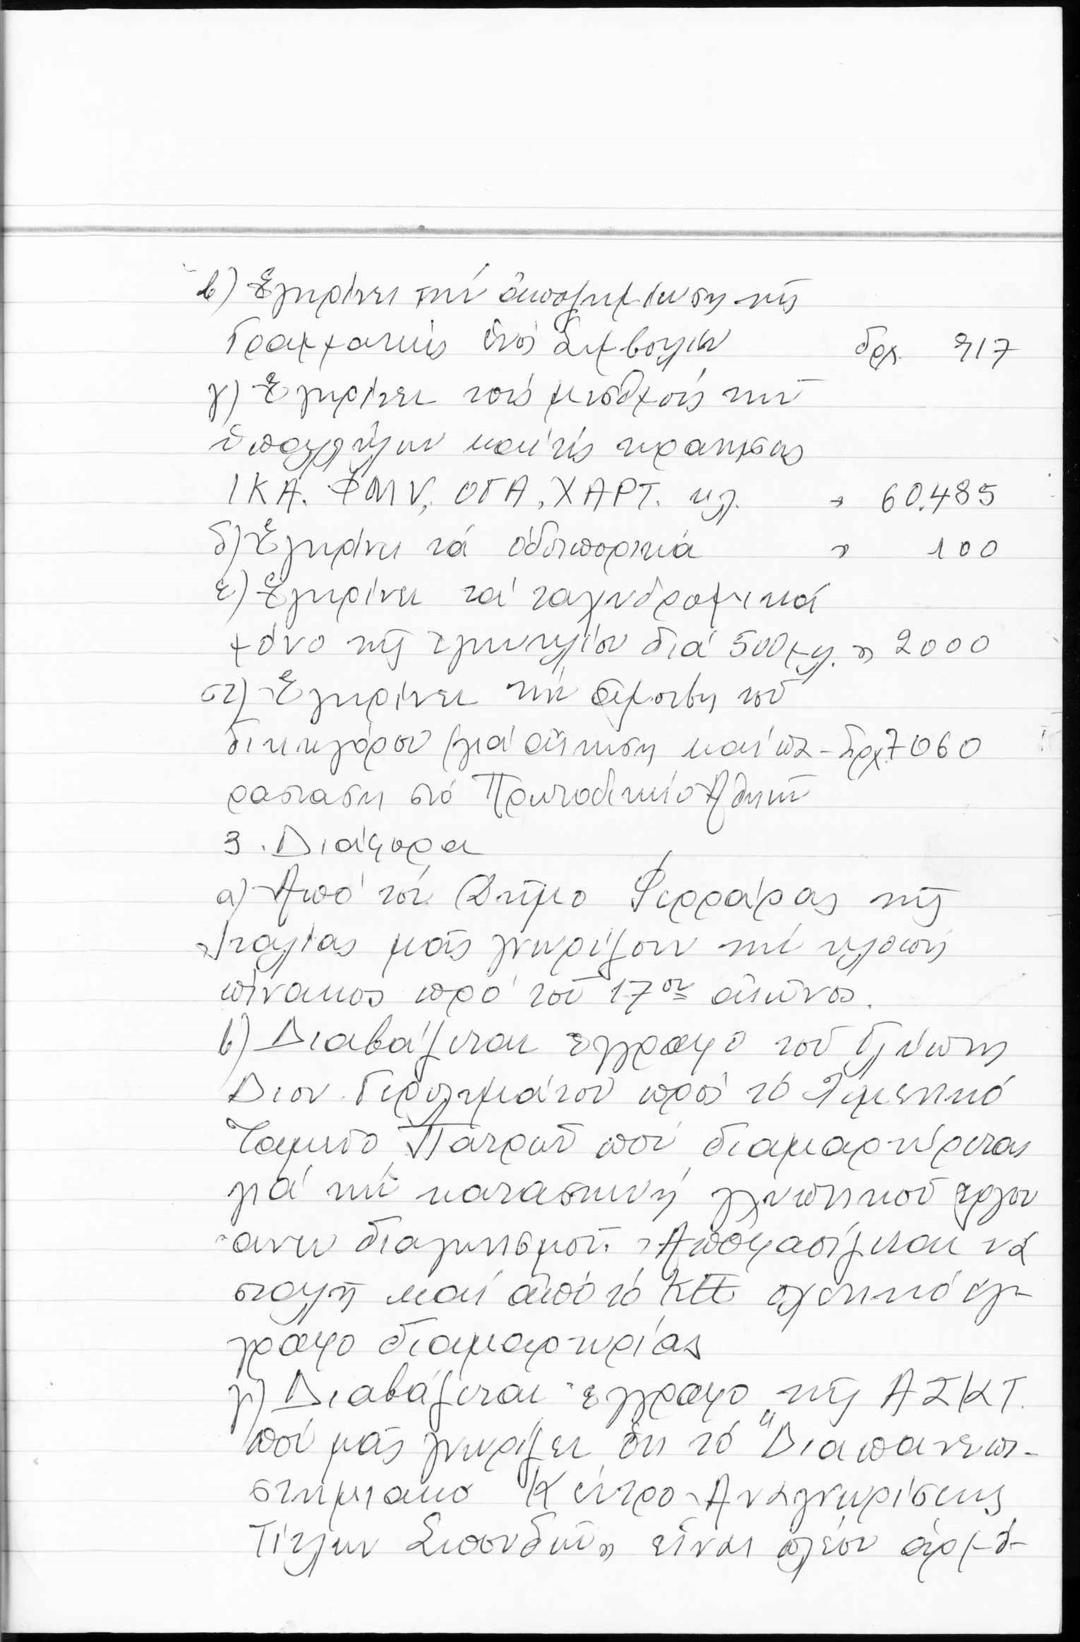 β) Ἐγκρίνει τήν ἀποζημίωση τῆς
Γραμματεύς ἑνός Συμβουλίου δρχ. 917
γ) Ἐγκρίνει τούς μισθούς τῶν
ὑπαλλήλων καί τίς κρατήσεις
ΙΚΑ. ΦΜΥ, ΟΓΑ, ΧΑΡΤ. κλ. » 60.485
δ) Ἐγκρίνει τά ὁδοιπορικά » 100
ε) Ἐγκρίνει τά ταχυδρομικά
μόνο τῆς διά 500 » 2000
στ) Ἐγκρίνει τήν ἀμοιβή τοῦ
δικηγόρου γιά αἴτηση καί πα- δρχ. 7060
ράσταση στό Πρωτοδικεῖο Ἀθηνῶν
3. Διάφορα
α) Ἀπό τόν Δῆμο Φερράρας τῆς
Ἰταλίας μᾶς γνωρίζουν τήν κλοπή
πίνακος πρό τοῦ 17ου αἰῶνος.
β) Διαβάζεται ἔγγραφο τοῦ Γλύπτη
Διον. Γερολυμάτου πρός τό Λιμενικό
Ταμεῖο Πατρῶν πού διαμαρτύρεται
γιά τήν κατασκευή γλυπτικοῦ ἔργου
ἄνευ διαγωνισμοῦ. Ἀποφασίζεται νά
σταλῆ καί ἀπό τό σχετικό ἔγ-
γραφο διαμαρτυρίας
γ) Διαβάζεται ἔγγραφο τῆς ΑΣΚΤ.
πού μᾶς γνωρίζει ὅτι τό "Διαπανεπι-
στημιακό Κέντρο Ἀναγνωρίσεως
Τίτλων Σπουδῶν» εἶναι πλέον ἁρμό-